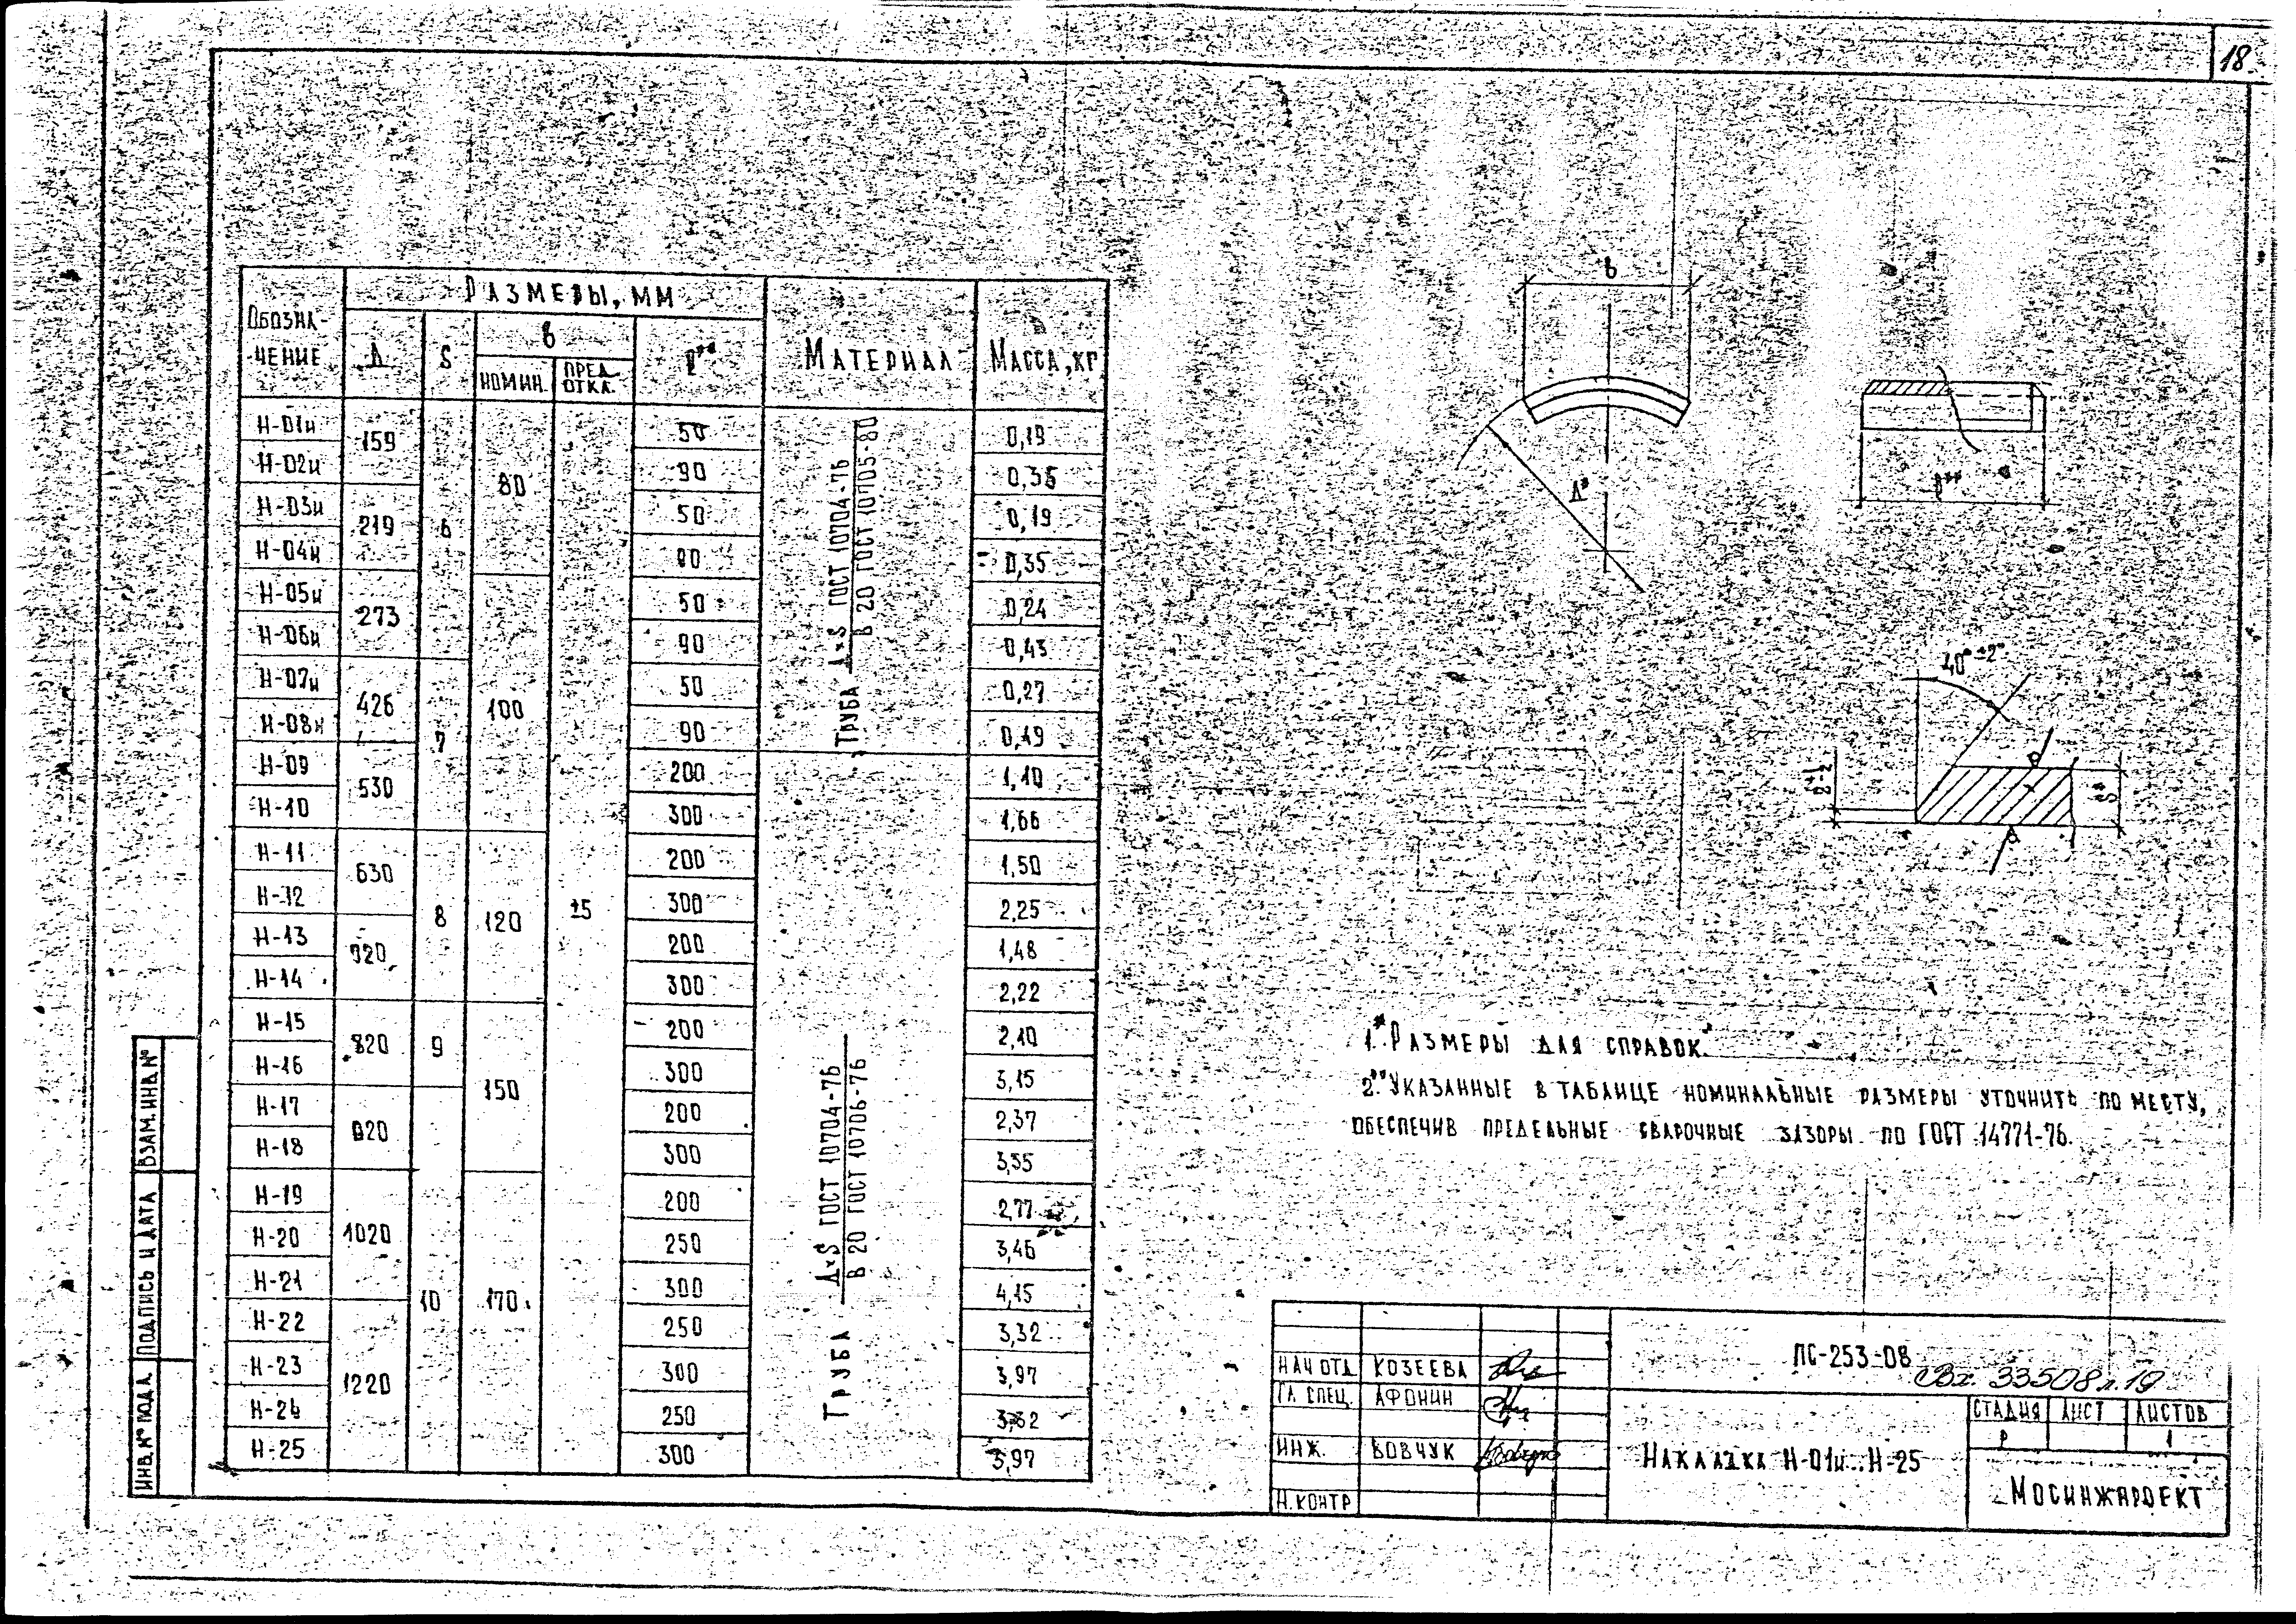 18
Обозна-
чение
Размеры, мм
Материал
Масса, кг
Д
S
в
ℓ**
номин.
пред.
откл.
Н-01и 159 6 80 ±5 50 0,19
Н-02и 90 0,35
Н-03и 219 50 0,19
Н-04и 90 0,35
Н-05и 273 100 50 0,24
Н-06и 90 0,43
Н-07и 426 7 50 0,27
Н-08и 90 0,49
Н-09 530 200 1,10
Н-10 300 1,66
Н-11 630 8 120 200 1,50
Н-12 300 2,25
Н-13 720 200 1,48
Н-14 300 2,22
Н-15 820 9 150 200 2,10
Н-16 300 3,15
Н-17 920 10 200 2,37
Н-18 300 3,55
Н-19 1020 170 200 2,77
Н-20 250 3,46
Н-21 300 4,15
Н-22 1220 250 3,32
Н-23 300 3,97
Н-24 250 3,32
Н-25 300 3,97
Труба Д×S ГОСТ 10704-76
В 20 ГОСТ 10705-80
Труба Д×S ГОСТ 10704-76
В 20 ГОСТ 10706-76
в
Д*
ℓ**
40°±2°
2±1
S*
1.* Размеры для справок.
2.** Указанные в таблице номинальные размеры уточнить по месту,
обеспечив предельные сварочные зазоры по ГОСТ 14771-76.
Взам. инв. №
Подпись и дата
Инв. № подл.
ПС-253-08
Вх. 33508 л.19
Нач. отд. Козеева
Гл. спец. Афонин
Инж. Вовчук
Н. контр
Накладка Н-01и...Н-25
Стадия Лист Листов
Р 1
Мосинжпроект